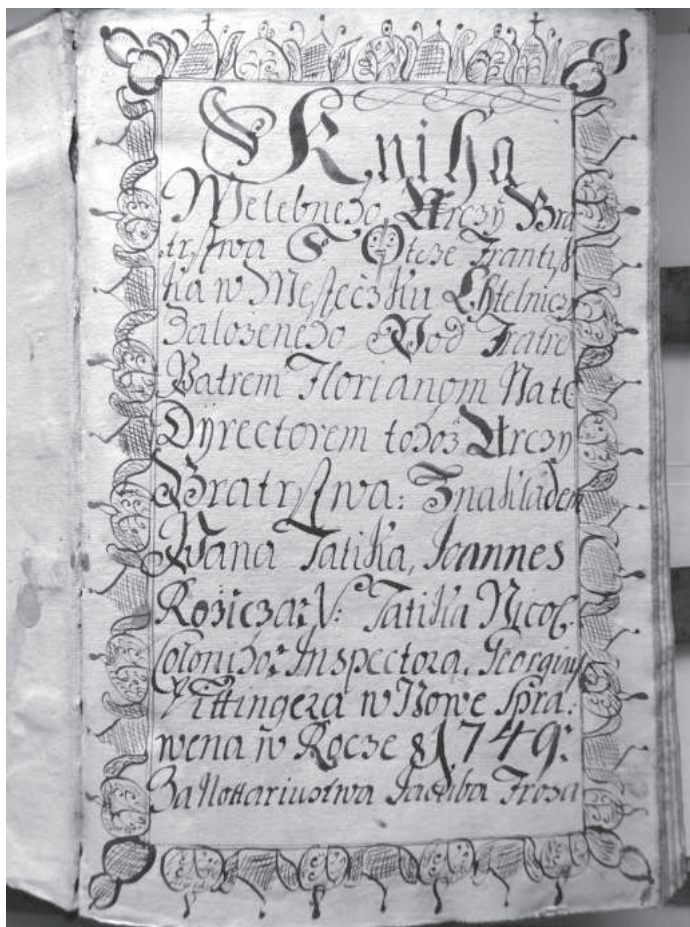 Kniha
Welebneho Urczy Bra
trstwa S. Otcze Frantiss
ka w Mesteczku Chtelniczy
Zalozeneho Pod Fratre
Patrem Florianom Nato
Dyrectorem tohoz Urczy
Bratrstwa: Znakladem
Pana Tatika, Joannes
Roziczaz V: Tatika Nicol.
Inspectora. Georgius
Pittingera w Nowe Spra:
wena w Rocze 1749:
Za Nottariustwa Jakuba Froza